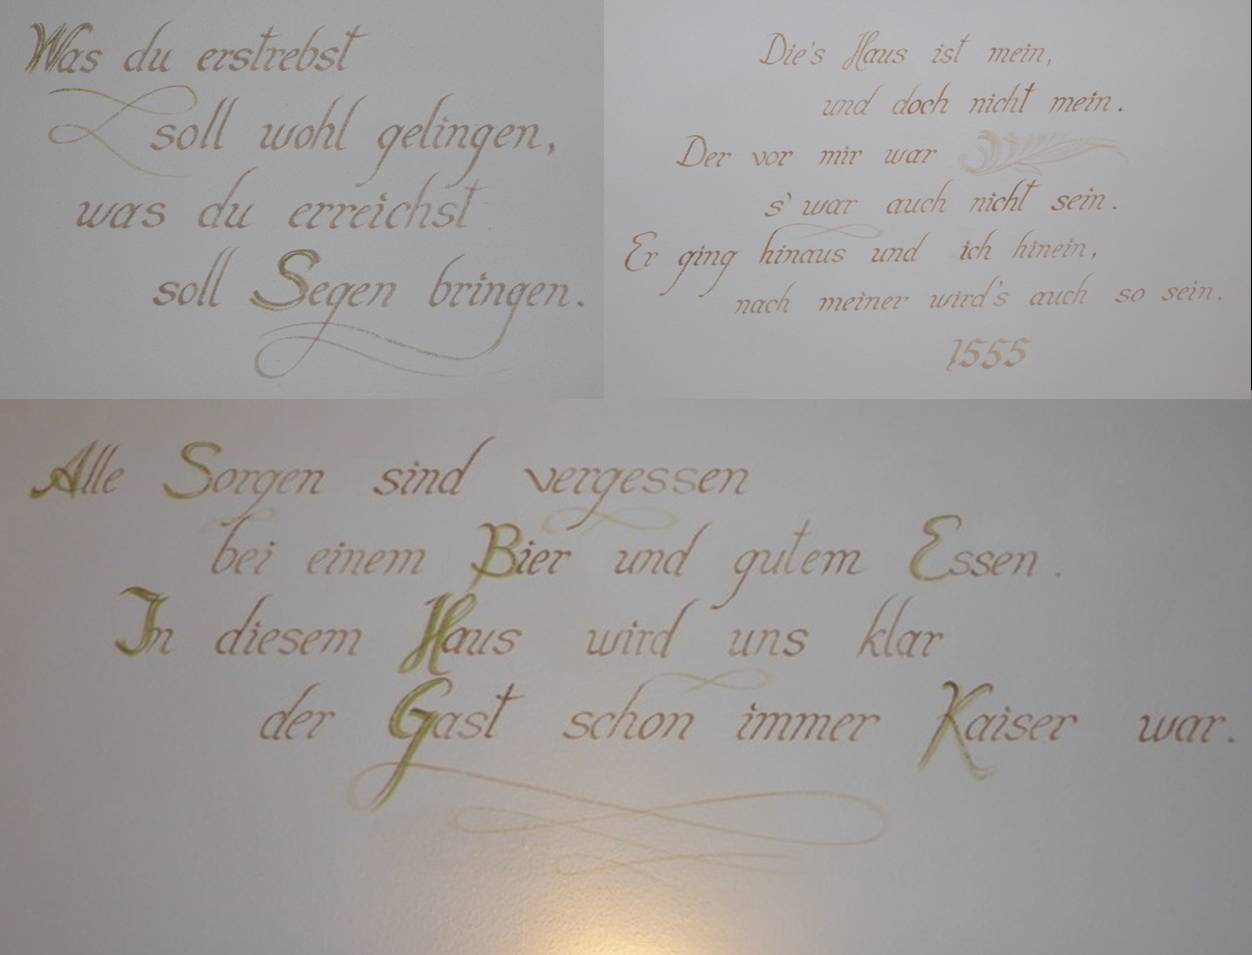 Was du erstrebst
soll wohl gelingen,
was du erreichst
soll Segen bringen.
Die's Haus ist mein,
und doch nicht mein.
Der vor mir war
s' war auch nicht sein.
Er ging hinaus und ich hinein,
nach meiner wird's auch so sein.
1555
Alle Sorgen sind vergessen
bei einem Bier und gutem Essen.
In diesem Haus wird uns klar
der Gast schon immer Kaiser war.